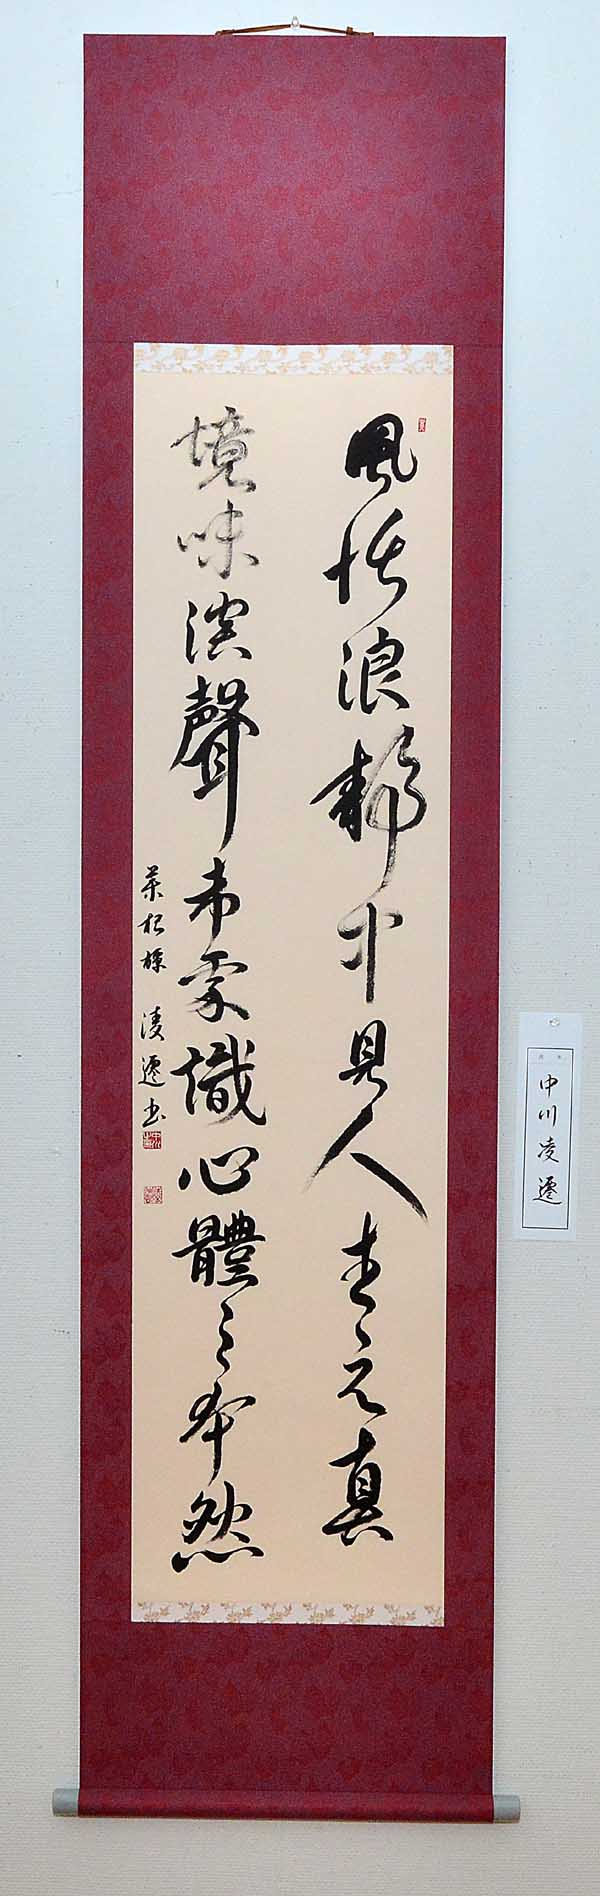 風恬浪靜中見人生之真
境味淡聲希處識心體之本然
菜根譚 凌遷書
中川凌遷